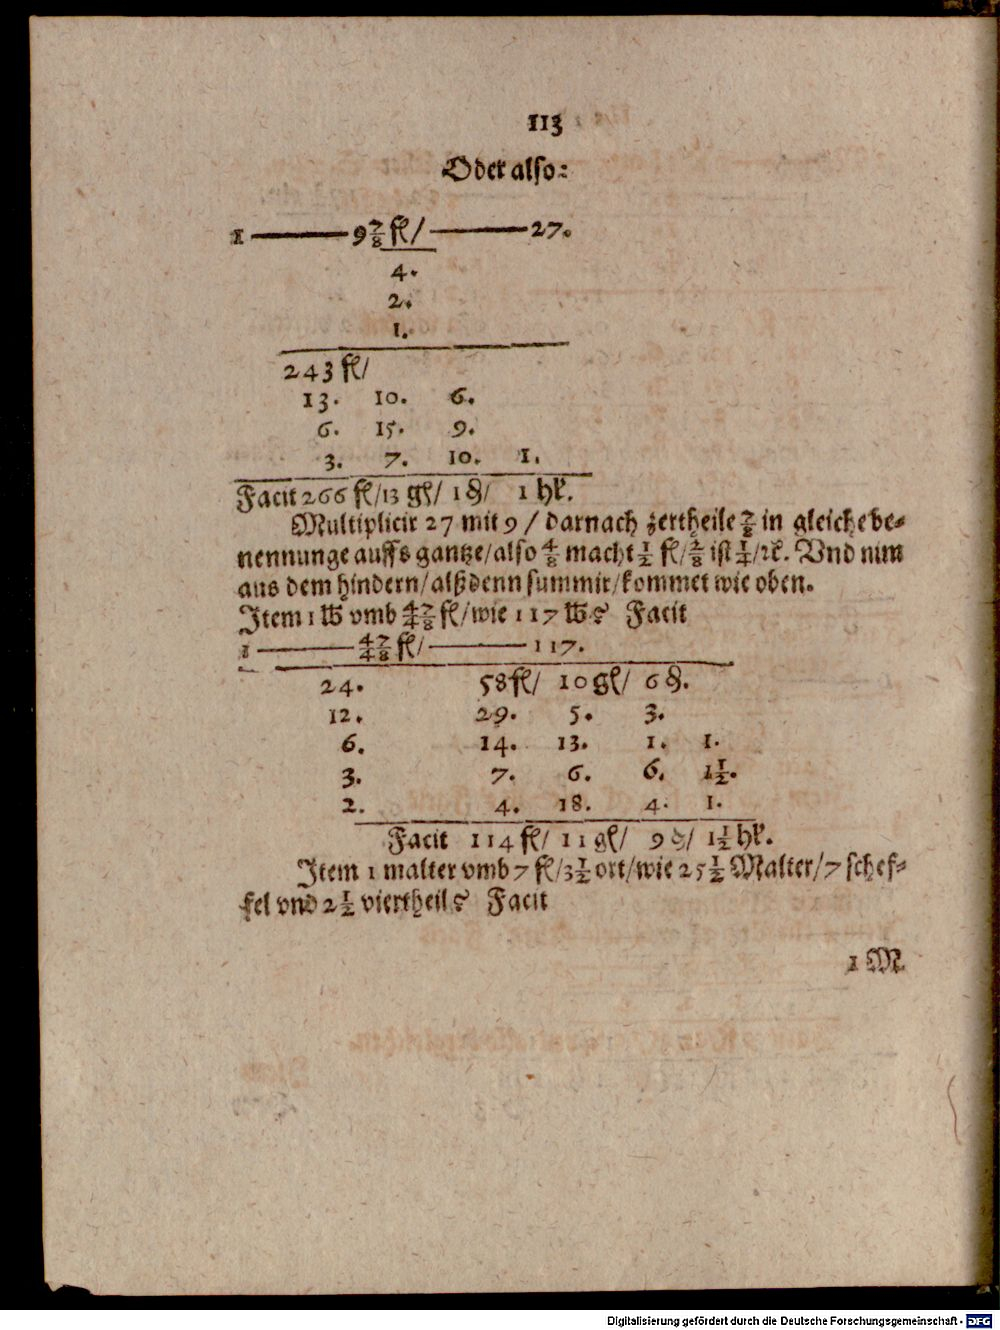 113
Oder also:
1 ——— 9 7/8 fl/ ——— 27.
4.
2.
1.
243 fl/
13. 10. 6.
6. 15. 9.
3. 7. 10. 1.
Facit 266 fl/13 gl/ 1 ₰/ 1 hl.
Multiplicir 27 mit 9/ darnach zertheile 7/8 in gleiche be-
nennunge auffs gantze/also 4/8 macht 1/2 fl/ 2/8 ist 1/4/ꝛc. Vnd nim
aus dem hindern/alßdenn summir/kommet wie oben.
Item 1 ℔ vmb 47/48 fl/wie 117 ℔? Facit
1 ——— 47/48 fl/ ——— 117.
24. 58 fl/ 10 gl/ 6 ₰.
12. 29. 5. 3.
6. 14. 13. 1. 1.
3. 7. 6. 6. 1 1/2.
2. 4. 18. 4. 1.
Facit 114 fl/ 11 gl/ 9 ₰/ 1 1/2 hl.
Item 1 malter vmb 7 fl/3 1/2 ort/wie 25 1/2 Malter/7 schef-
fel vnd 2 1/2 viertheil? Facit
1 M
Digitalisierung gefördert durch die Deutsche Forschungsgemeinschaft - DFG